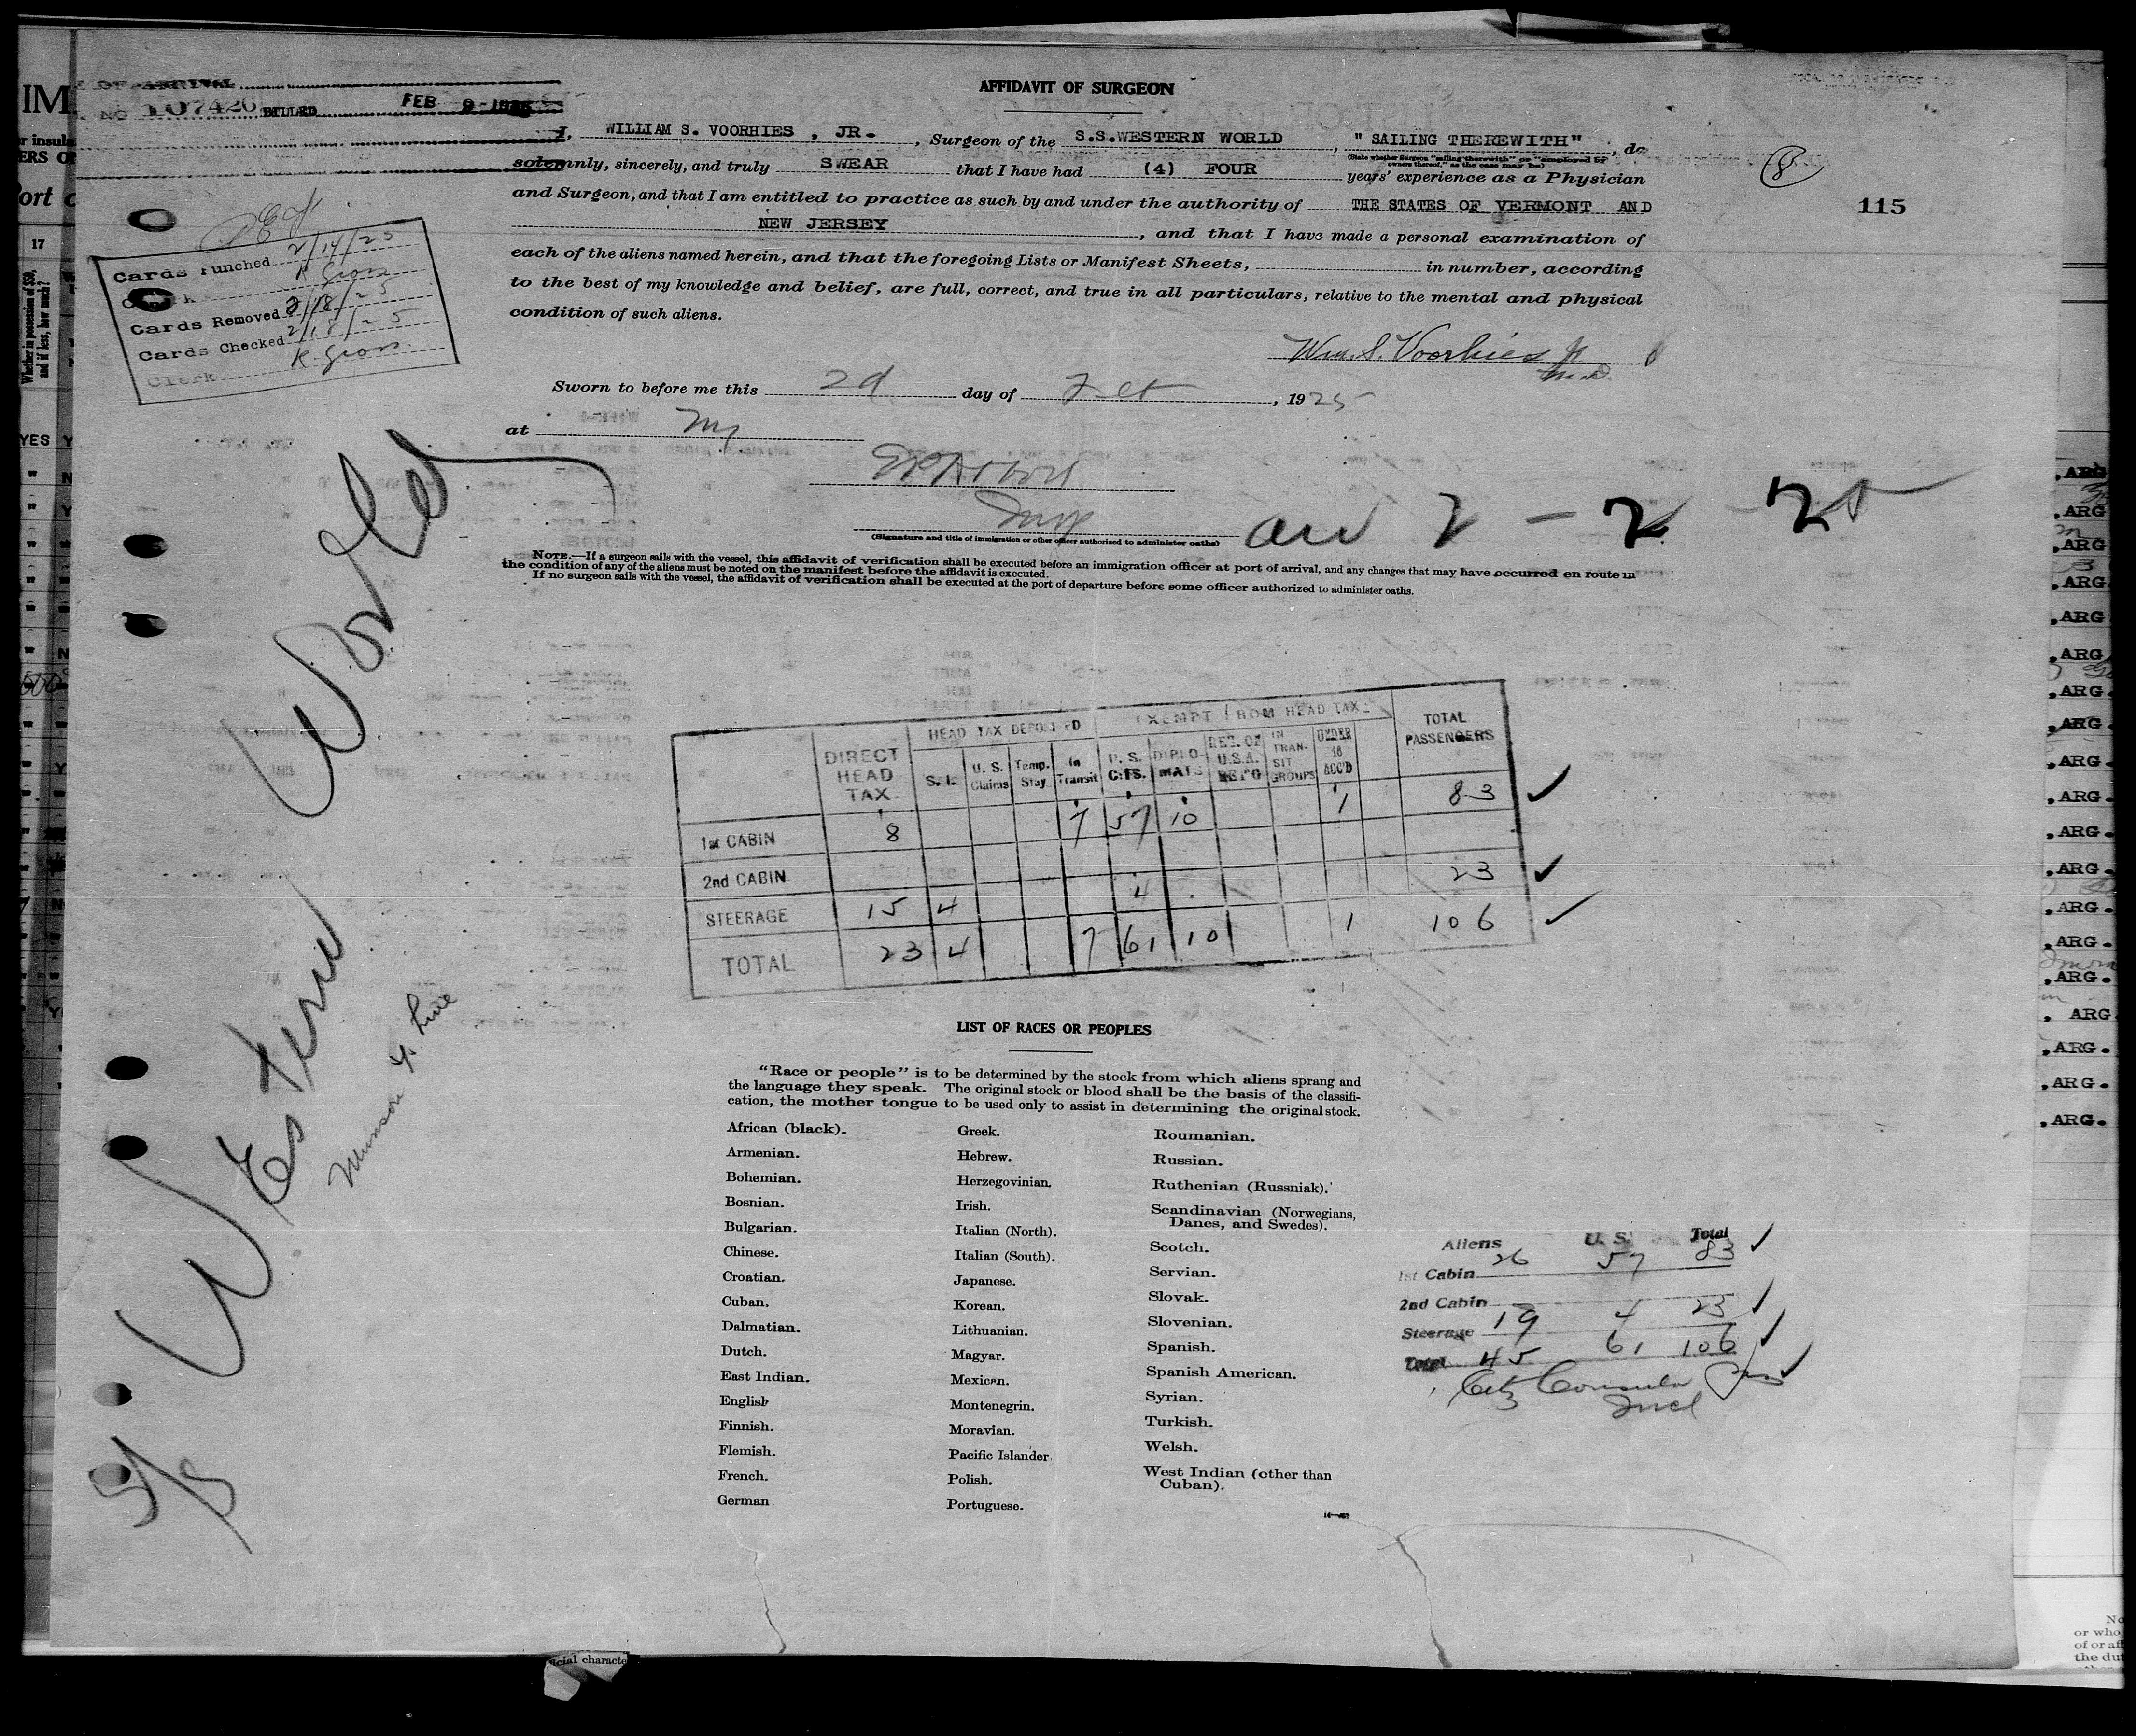 AFFIDAVIT OF SURGEON
NO 107426 BILLED FEB 9-1925
I, WILLIAM S. VOORHIES , JR. , Surgeon of the S.S.WESTERN WORLD , " SAILING THEREWITH" , do
(State whether Surgeon "sailing therewith" or "employed by owners thereof," as the case may be)
solemnly, sincerely, and truly SWEAR that I have had (4) FOUR years' experience as a Physician
and Surgeon, and that I am entitled to practice as such by and under the authority of THE STATES OF VERMONT AND
NEW JERSEY , and that I have made a personal examination of
each of the aliens named herein, and that the foregoing Lists or Manifest Sheets, in number, according
to the best of my knowledge and belief, are full, correct, and true in all particulars, relative to the mental and physical
condition of such aliens.
8
115
Wm. S. Voorhies Jr
M.D.
Cards Punched 2/14/25
Clerk K. Gross
Cards Removed 2/18/25
Cards Checked 2/18/25
Clerk K. Gross
Sworn to before me this 2d day of Feb , 1925
at NY
(Signature and title of immigration or other officer authorized to administer oaths)
arr 2 - 2 - 25
NOTE.—If a surgeon sails with the vessel, this affidavit of verification shall be executed before an immigration officer at port of arrival, and any changes that may have occurred en route in
the condition of any of the aliens must be noted on the manifest before the affidavit is executed.
If no surgeon sails with the vessel, the affidavit of verification shall be executed at the port of departure before some officer authorized to administer oaths.
S/S Western World
Munson Line
DIRECT HEAD TAX
HEAD TAX DEPOSITED
EXEMPT FROM HEAD TAX
TOTAL PASSENGERS
S. I. U. S. Claims Temp. Stay In Transit U. S. CITS. DIPLOMATS RES. OF U.S.A. RET'G IN TRANSIT GROUPS UNDER 16 ACC'D
1st CABIN 8 7 57 10 1 83
2nd CABIN
STEERAGE 15 4 4 23
TOTAL 23 4 7 61 10 1 106
LIST OF RACES OR PEOPLES
"Race or people" is to be determined by the stock from which aliens sprang and
the language they speak. The original stock or blood shall be the basis of the classifi-
cation, the mother tongue to be used only to assist in determining the original stock.
African (black).
Armenian.
Bohemian.
Bosnian.
Bulgarian.
Chinese.
Croatian.
Cuban.
Dalmatian.
Dutch.
East Indian.
English
Finnish.
Flemish.
French.
German
Greek.
Hebrew.
Herzegovinian.
Irish.
Italian (North).
Italian (South).
Japanese.
Korean.
Lithuanian.
Magyar.
Mexican.
Montenegrin.
Moravian.
Pacific Islander.
Polish.
Portuguese.
Roumanian.
Russian.
Ruthenian (Russniak).
Scandinavian (Norwegians,
Danes, and Swedes).
Scotch.
Servian.
Slovak.
Slovenian.
Spanish.
Spanish American.
Syrian.
Turkish.
Welsh.
West Indian (other than
Cuban).
Aliens U. S. Total
1st Cabin 26 57 83
2nd Cabin
Steerage 19 4 23
Total 45 61 106